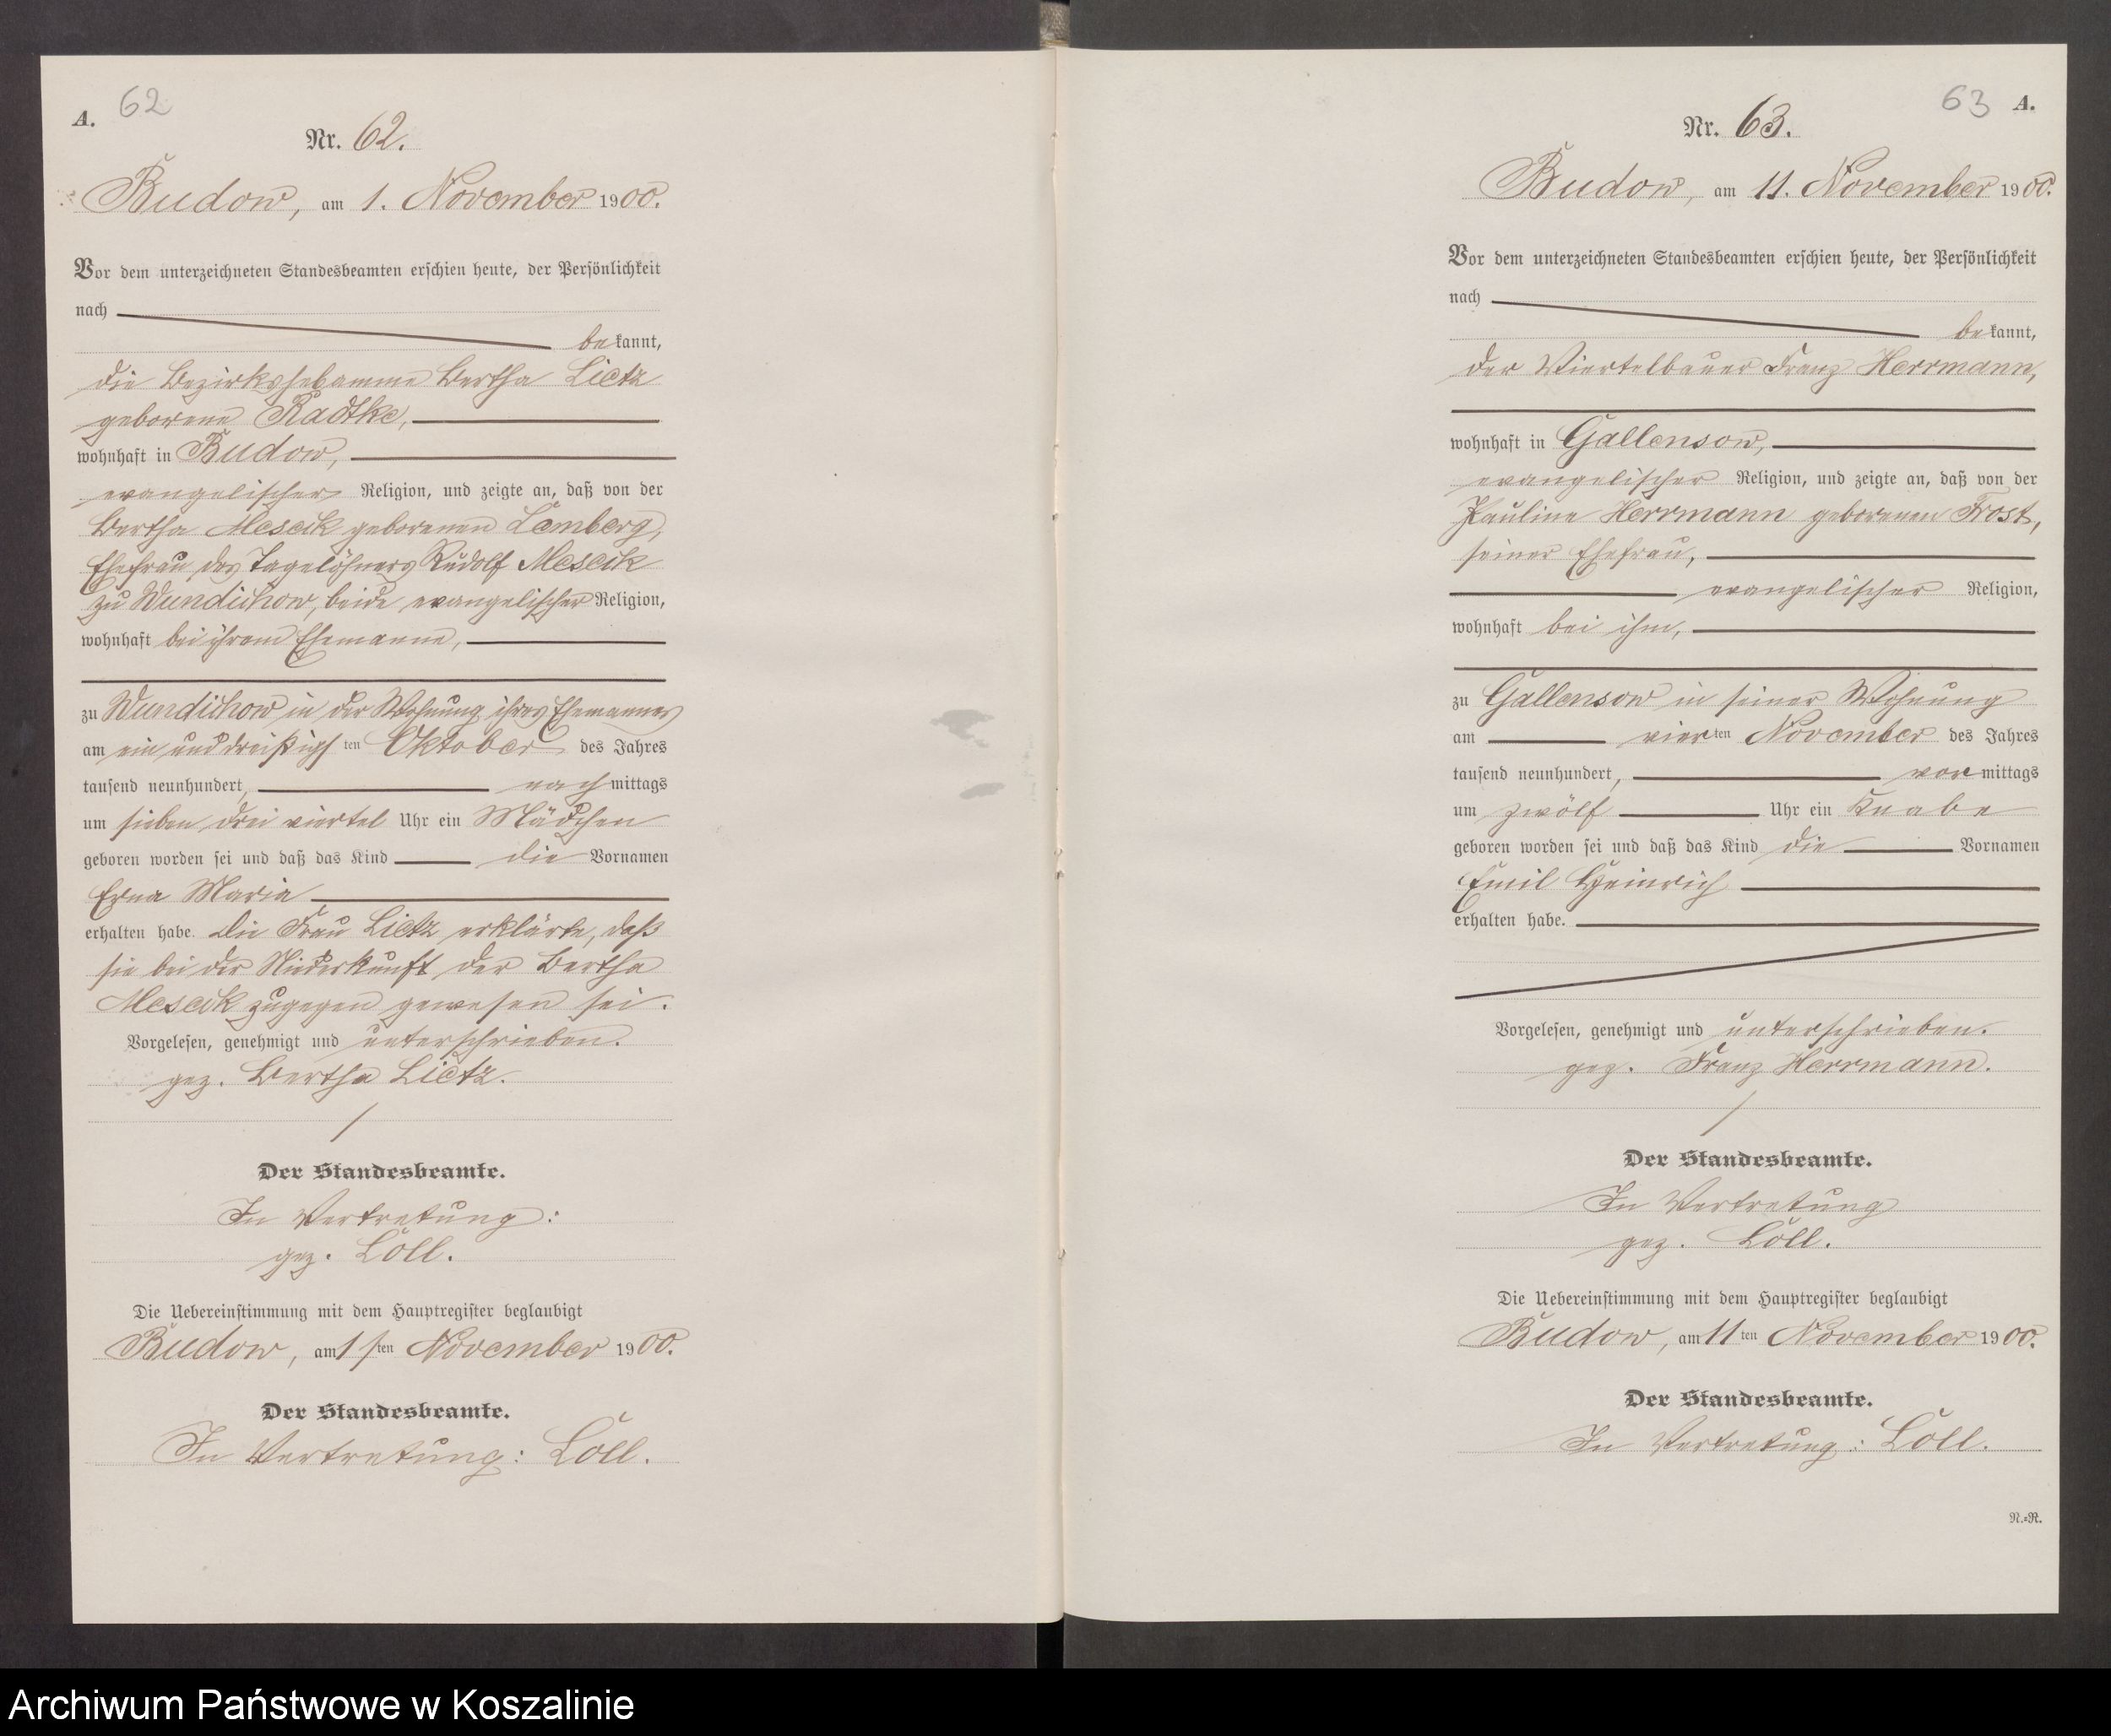 A. 62
Nr. 62.
Budow, am 1. November 1900.
Vor dem unterzeichneten Standesbeamten erschien heute, der Persönlichkeit
nach
bekannt,
die Bezirkshebamme Bertha Lietz
geborene Radtke,
wohnhaft in Budow,
evangelischer Religion, und zeigte an, daß von der
Bertha Meseck geborenen Lemberg,
Ehefrau des Tagelöhners Rudolf Meseck
zu Wundichow, beide evangelischer Religion,
wohnhaft bei ihrem Ehemanne,
zu Wundichow in der Wohnung ihres Ehemannes
am ein und dreißigsten Oktober des Jahres
tausend neunhundert, nachmittags
um sieben drei viertel Uhr ein Mädchen
geboren worden sei und daß das Kind die Vornamen
Erna Maria
erhalten habe. Die Frau Lietz erklärte, daß
sie bei der Niederkunft der Bertha
Meseck zugegen gewesen sei.
Vorgelesen, genehmigt und unterschrieben.
gez. Bertha Lietz.
Der Standesbeamte.
In Vertretung:
gez. Löll.
Die Uebereinstimmung mit dem Hauptregister beglaubigt
Budow, am 1sten November 1900.
Der Standesbeamte.
In Vertretung: Löll.
63 A.
Nr. 63.
Budow, am 11. November 1900.
Vor dem unterzeichneten Standesbeamten erschien heute, der Persönlichkeit
nach
bekannt,
der Viertelbauer Franz Herrmann,
wohnhaft in Gallensow,
evangelischer Religion, und zeigte an, daß von der
Pauline Herrmann geborenen Frost,
seiner Ehefrau,
evangelischer Religion,
wohnhaft bei ihm,
zu Gallensow in seiner Wohnung
am vierten November des Jahres
tausend neunhundert, vormittags
um zwölf Uhr ein Knabe
geboren worden sei und daß das Kind die Vornamen
Emil Heinrich
erhalten habe.
Vorgelesen, genehmigt und unterschrieben.
gez. Franz Herrmann.
Der Standesbeamte.
In Vertretung
gez. Löll.
Die Uebereinstimmung mit dem Hauptregister beglaubigt
Budow, am 11ten November 1900.
Der Standesbeamte.
In Vertretung: Löll.
N.=R.
Archiwum Państwowe w Koszalinie